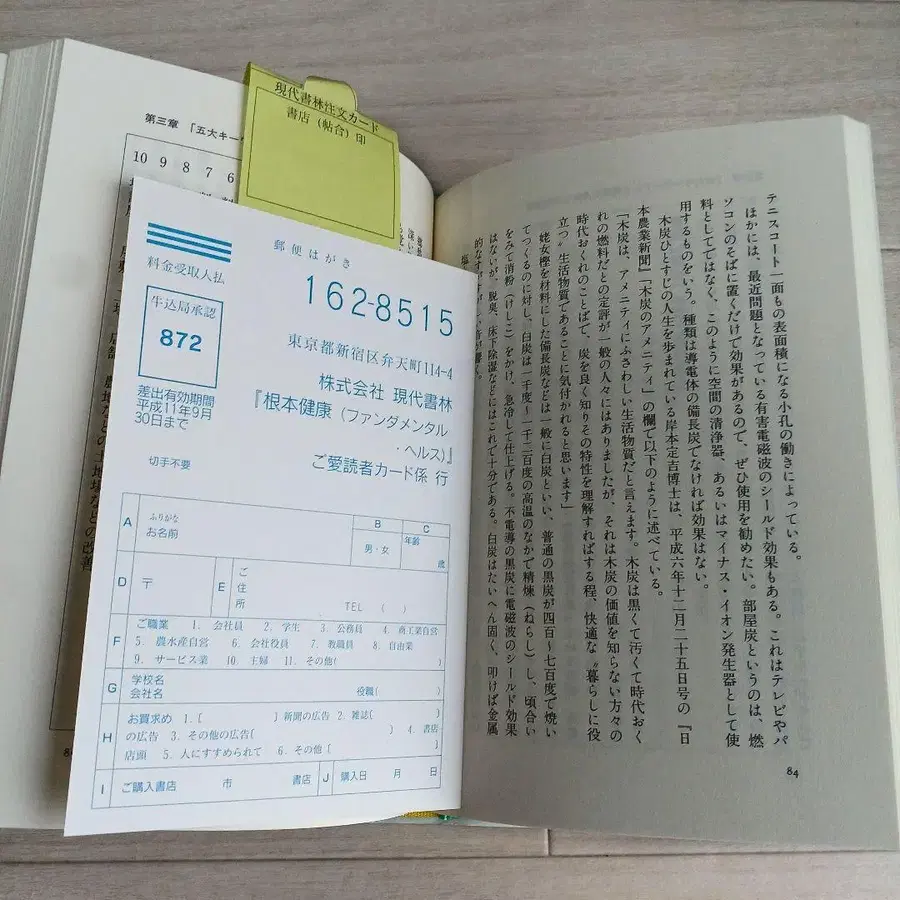 第三章 「五大キー
10 9 8 7 6
現代書林注文カード
書店（帖合）印
郵便はがき
料金受取人払
162-8515
牛込局承認
872
東京都新宿区弁天町114-4
株式会社 現代書林
『根本健康（ファンダメンタル
・ヘルス）』
ご愛読者カード係 行
差出有効期間
平成11年9月
30日まで
切手不要
A ふりがな
お名前
B
男・女
C
年齢
歳
D 〒
E ご住所
TEL （ ）
F ご職業 1. 会社員 2. 学生 3. 公務員 4. 商工業自営
5. 農水産自営 6. 会社役員 7. 教職員 8. 自由業
9. サービス業 10. 主婦 11. その他( )
G 学校名
会社名 役職( )
H お買求め 1.[ ]新聞の広告 2. 雑誌[ ]
の広告 3. その他の広告[ ] 4. 書店
店頭 5. 人にすすめられて 6. その他[ ]
I ご購入書店 市 書店
J 購入日 月 日
テニスコート一面もの表面積になる小孔の働きによっている。
ほかには、最近問題となっている有害電磁波のシールド効果もある。これはテレビやパ
ソコンのそばに置くだけで効果があるので、ぜひ使用を勧めたい。部屋炭というのは、燃
料としてではなく、このように空間の清浄器、あるいはマイナス・イオン発生器として使
用するものをいう。種類は導電体の備長炭でなければ効果はない。
木炭ひとすじの人生を歩まれている岸本定吉博士は、平成六年十二月二十五日号の『日
本農業新聞』「木炭のアメニティ」の欄で以下のように述べている。
「木炭は、アメニティにふさわしい生活物質だと言えます。木炭は黒くて汚くて時代おく
れの燃料だとの定評が一般の人々にはありましたが、それは木炭の価値を知らない方々の
時代おくれのことばで、炭を良く知りその特性を理解すればする程、快適な〝暮らしに役
立つ〟生活物質であることに気付かれると思います」
姥女樫を材料にした備長炭などは一般に白炭といい、普通の黒炭が四百〜七百度で焼い
てつくるのに対し、白炭は一千度〜一千二百度の高温のなかで精煉（ねらし）し、頃合い
をみて消粉（けしこ）をかけ、急冷して仕上げる。不電導の黒炭に電磁波のシールド効果
はないが、脱臭、床下除湿などにはこれで十分である。白炭はたいへん固く、叩けば金属
84